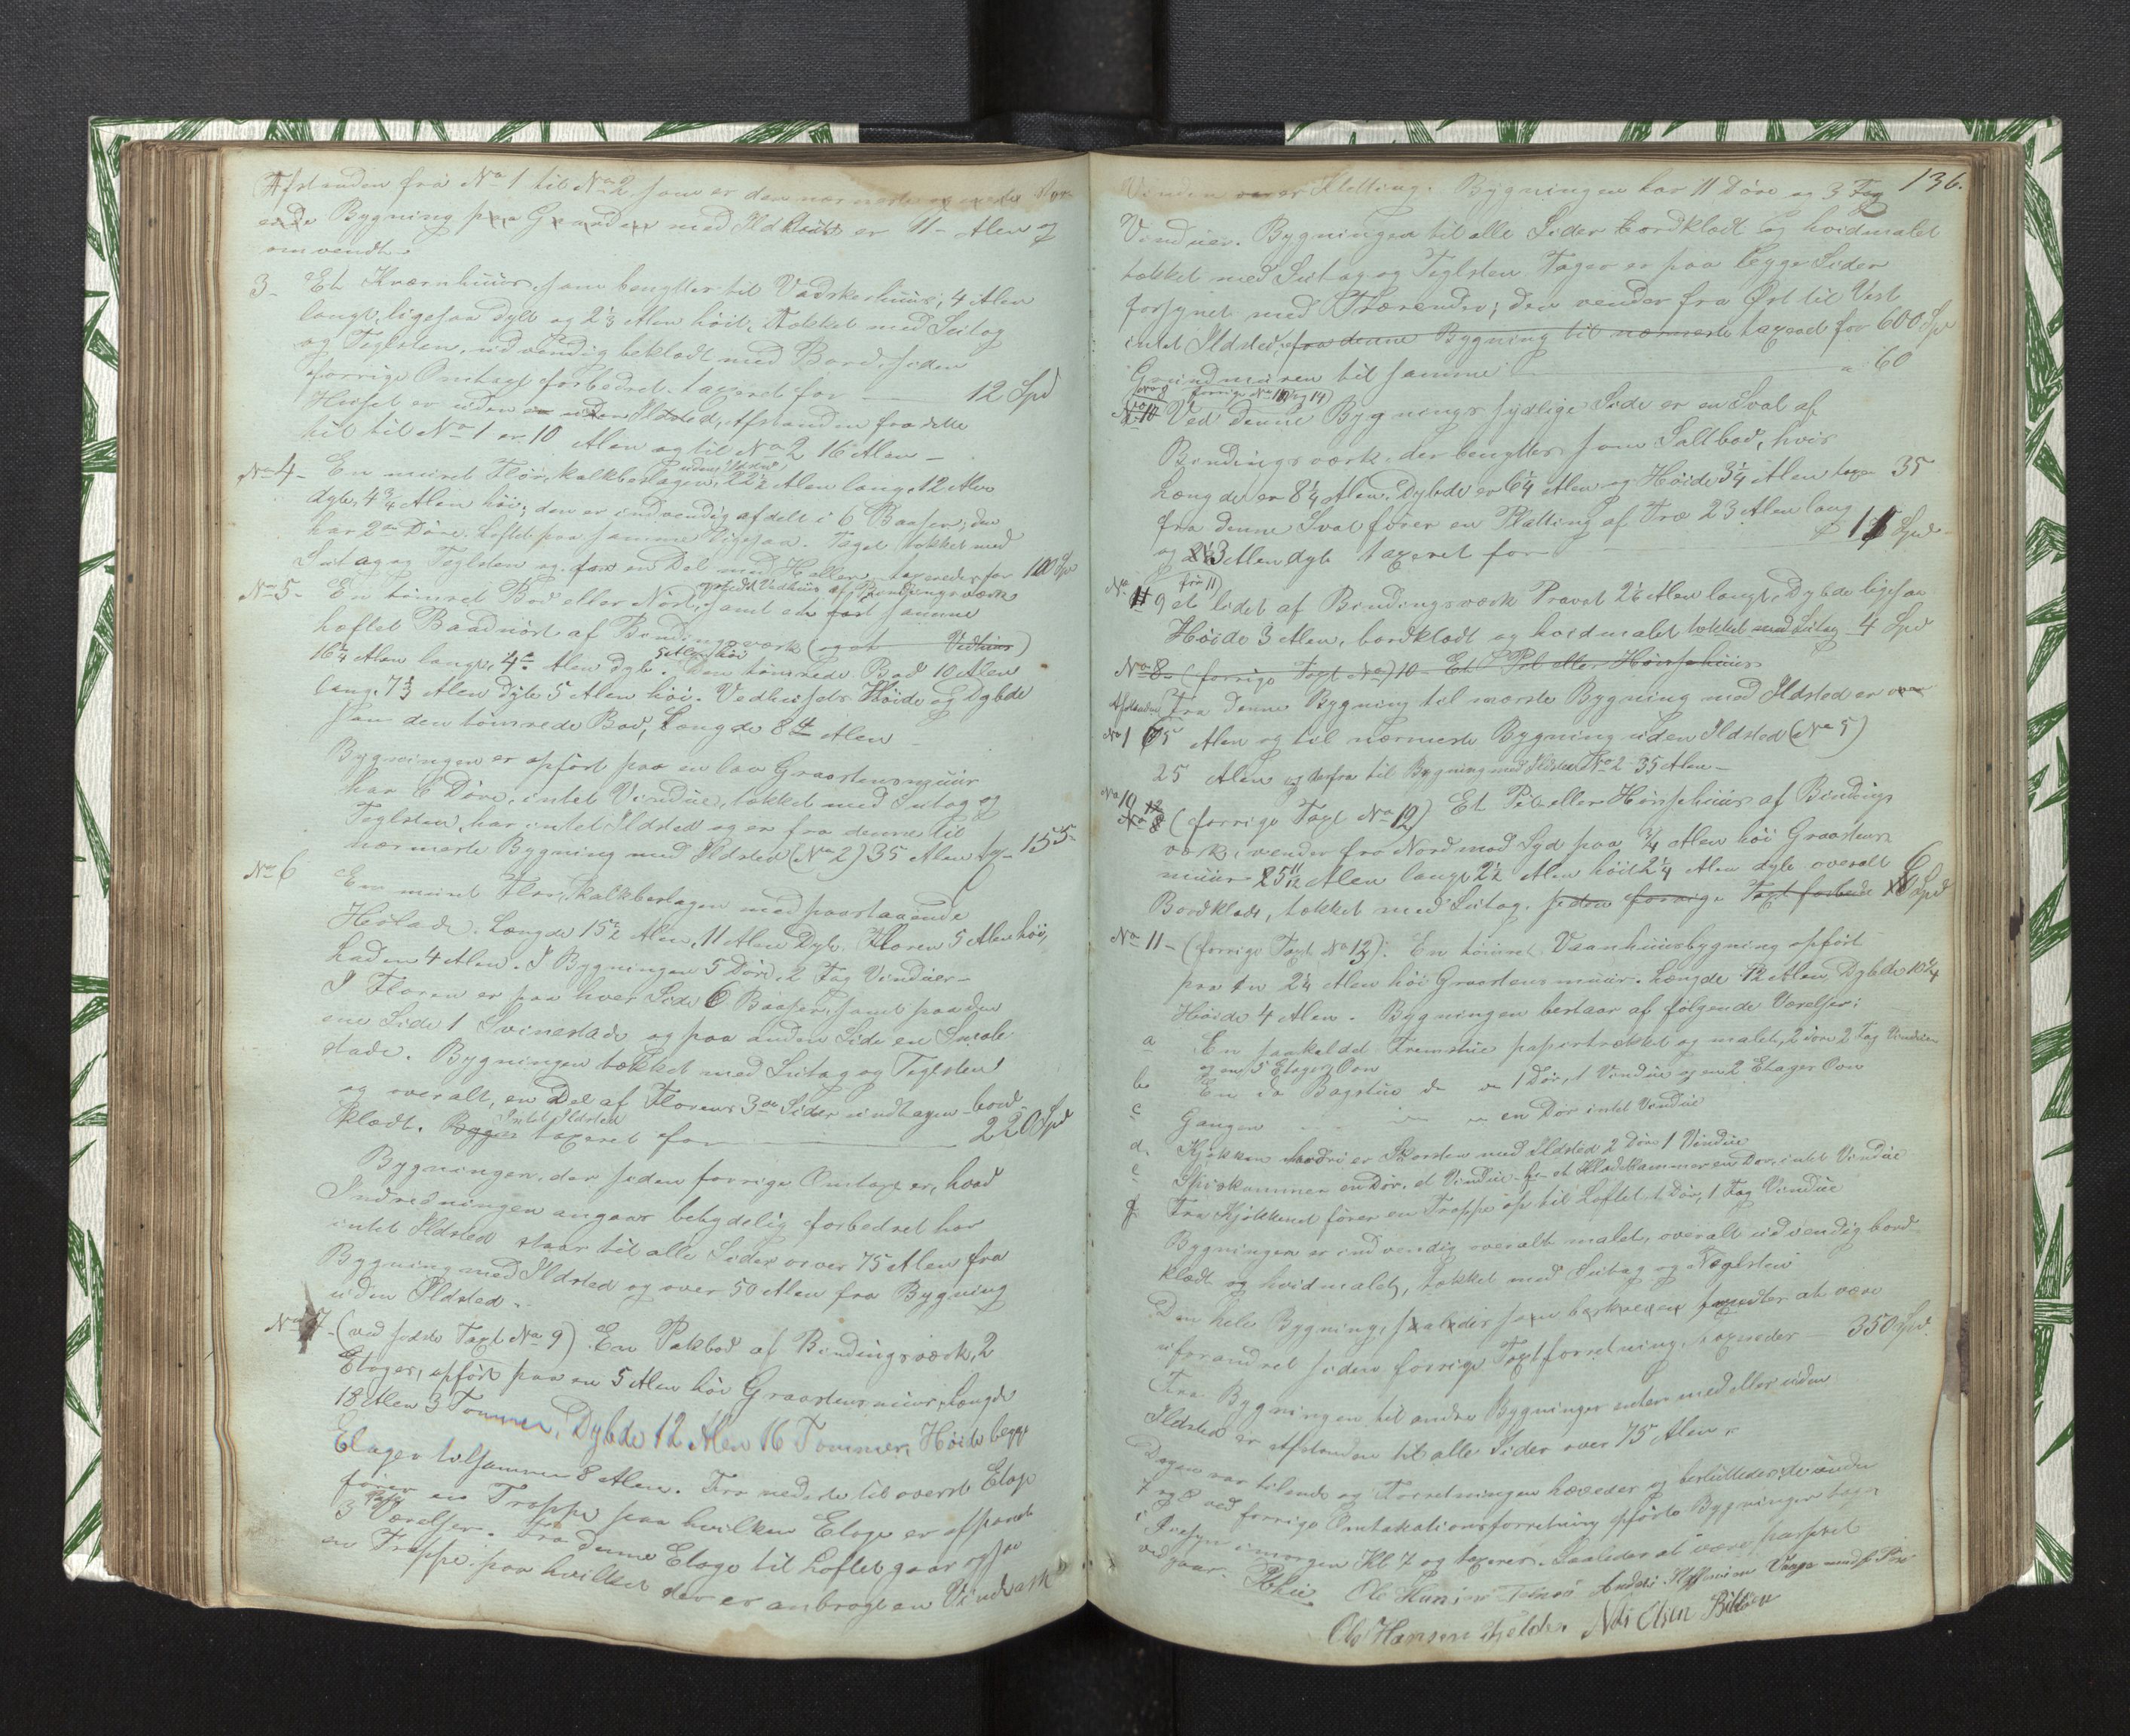 Afstanden fra No 1 til No 2 som er den nærmeste
Bygning paa Grunden med Ildsted er 11 - Alen og
omvendt.
3- Et Kværnhuus, som benyttes til Vadskerhuus, 4 Alen
langt, ligesaa dybt og 2⅓ Alen høit, Tækket med Sutag
og Teglsten, udvendig beklædt med Bord, siden
forrige Omtaxt forbedret taxeret for — 12 Spd
Huset er uden Ildsted, Afstanden fra dette
til til No 1 er 10 Alen og til No 2 16 Alen -
No 4- En muret Flor, kalkbeslagen, uden Ildsted 22½ Alen lang, 12 Alen
dyb, 4¾ Alen høi; den er indvendig afdelt i 6 Baaser; den
har 2de Døre. Loftet paa samme ligesaa. Taget tækket med
Sutag og Teglsten og for en Del med Heller, taxeredes for 100 Spd
No 5- En tømret Bod eller Nøst, samt et Vedhuus af Bindingsværk
hæftet Baadnøst af Bindingsværk (og et Vedhuus)
16¼ Alen langt, 4 Alen dyb. 5 Alen høi Den tømrede Bod 10 Alen
lang, 7⅓ Alen dyb 5 Alen høi. Vedhusets Høide og Dybde
som den tømrede Bod, Længde 8 Alen -
Bygningen er opført paa en lav Graastensmuur
har 6 Døre, intet Vindue, tækket med Sutag og
Teglsten, har intet Ildsted og er fra denne til
nærmeste Bygning med Ildsted (No 2) 35 Alen tax- 155-
No 6 En muret Flor, Kalkbeslagen med paastaaende
Hølade. Længde 15½ Alen, 11 Alen Dyb. Floren 5 Alen høi,
Laden 4 Alen. I Bygningen 5 Døre, 2 Fag Vinduer -
I Floren er paa hver Side 6 Baaser, samt paa den
ene Side 1 Svinestade og paa anden Side en Smale-
stade. Bygningen tækket med Sutag og Teglsten
og overalt, en Del af Florens 3de Sider undtagen bord-
klædt. Intet Ildsted taxeret for — 220 Spd
Bygningen, der siden forrige Omtaxt er, hvad
Indredningen angaar betydelig forbedret har
intet Ildsted staar til alle Sider over 75 Alen fra
Bygning med Ildsted og over 50 Alen fra Bygning
uden Ildsted.
No 7- (ved sidste Taxt No 9) En Pakbod af Bindingsværk, 2
Etager, opført paa en 5 Alen høi Graastensmuur, Længde
18 Alen 3 Tommer, Dybde 12 Alen 16 Tommer, Høide begge
Etager tilsammen 8 Alen. Fra nederste til øverste Etage
fører en Trappe paa hvilken Etage er afpanelt
3 Værelser. Fra denne Etage til Loftet gaar ogsaa
en Trappe, paa hvilket der er anbragt en Vind
136.
Bygningen har 11 Døre og 3 Fag
Vinduer. Bygningen til alle Sider bordklædt og hvidmalet
tækket med Sutag og Teglsten. Taget er paa begge Sider
forsynet med Tværrender; den vender fra Øst til Vest
intet Ildsted, fra denne Bygning til nærmeste taxeret for 600 Spd
Grundmuren til samme — " 60
No 8 (forrige No 10 og 14) Ved denne Bygnings sydlige Side er en Sval af
Bindingsværk, der benyttes som Saltbod, hvis
Længde er 8¼ Alen, Dybde er 6¼ Alen og Høide 3¼ Alen tax 35
fra denne Sval fører en Platting af Træ 23 Alen lang
og 3 Alen dyb taxeret for — 1 Spd
No 9 (for 11) et lidet af Bindingsværk Pravat 2½ Alen langt, Dybde ligesaa
Høide 3 Alen, bordklædt og hvidmalet tækket med Sutag 4 Spd
No 8- (forrige Taxt No) 10 - Et Pil eller Hønsehuus
Afstanden Fra denne Bygning til nærste Bygning med Ildsted er
No 1 65 Alen og til nærmeste Bygning uden Ildsted (No 5)
25 Alen og derfra til Bygning med Ildsted No 2 35 Alen -
No 10 (forrige Taxt No 12) Et Pil eller Hønsehuus af Bindings
værk, vender fra Nord mod Syd paa ¾ Alen høi Graastens
muur 5 11/12 Alen langt 2½ Alen høit 2¼ Alen dybt overalt
Bordklædt, tækket med Sutag. siden forrige Taxt forbedr 6 Spd
No 11 - (forrige Taxt No 13). En tømret Vaanhuusbygning opført
paa en 2¼ Alen høi Graastensmuur. Længde 12 Alen, Dybde 10¼
Høide 4 Alen. Bygningen bestaar af følgende Værelser:
a En saakaldet Fremstue papirtrækket og malet, 2 Døre 2 Fag Vinduer
og en 3 Etages Ovn
b En do Bagstue do 1 Dør, 1 Vindue og en 2 Etages Ovn
c Gangen en Dør intet Vindue
d. Kjøkken hvori er Skorsten med Ildsted 2 Døre 1 Vindue
e Spiskammer en Dør, et Vindue - et Klædekammer en Dør, intet Vindue
f Fra Kjøkkenet fører en Trappe op til Loftet 1 Dør, 1 Fag Vindue
Bygningen er indvendig overalt malet, overalt udvendig bord
klædt og hvidmalet, tækket med Sutag og Teglsten
Den hele Bygning, saaledes som beskreven at være
uforandret siden forrige Taxtforretning, taxeredes — 350 Spd.
Fra Bygningen til andre Bygninger enten med eller uden
Ildsted er Afstanden til alle Sider over 75 Alen.
Dagen var tilende og Forretningen hævedes og besluttedes de under
7 og 8 ved forrige Omtakationsforretning opførte Bygninger tages
i Øiesyn imorgen Kl. 7 og taxeres. Saaledes at være passeret
vedgaar. Ole Hansen Andreas Steffensen med p. Pen
Ole Hansen Nils Olsen